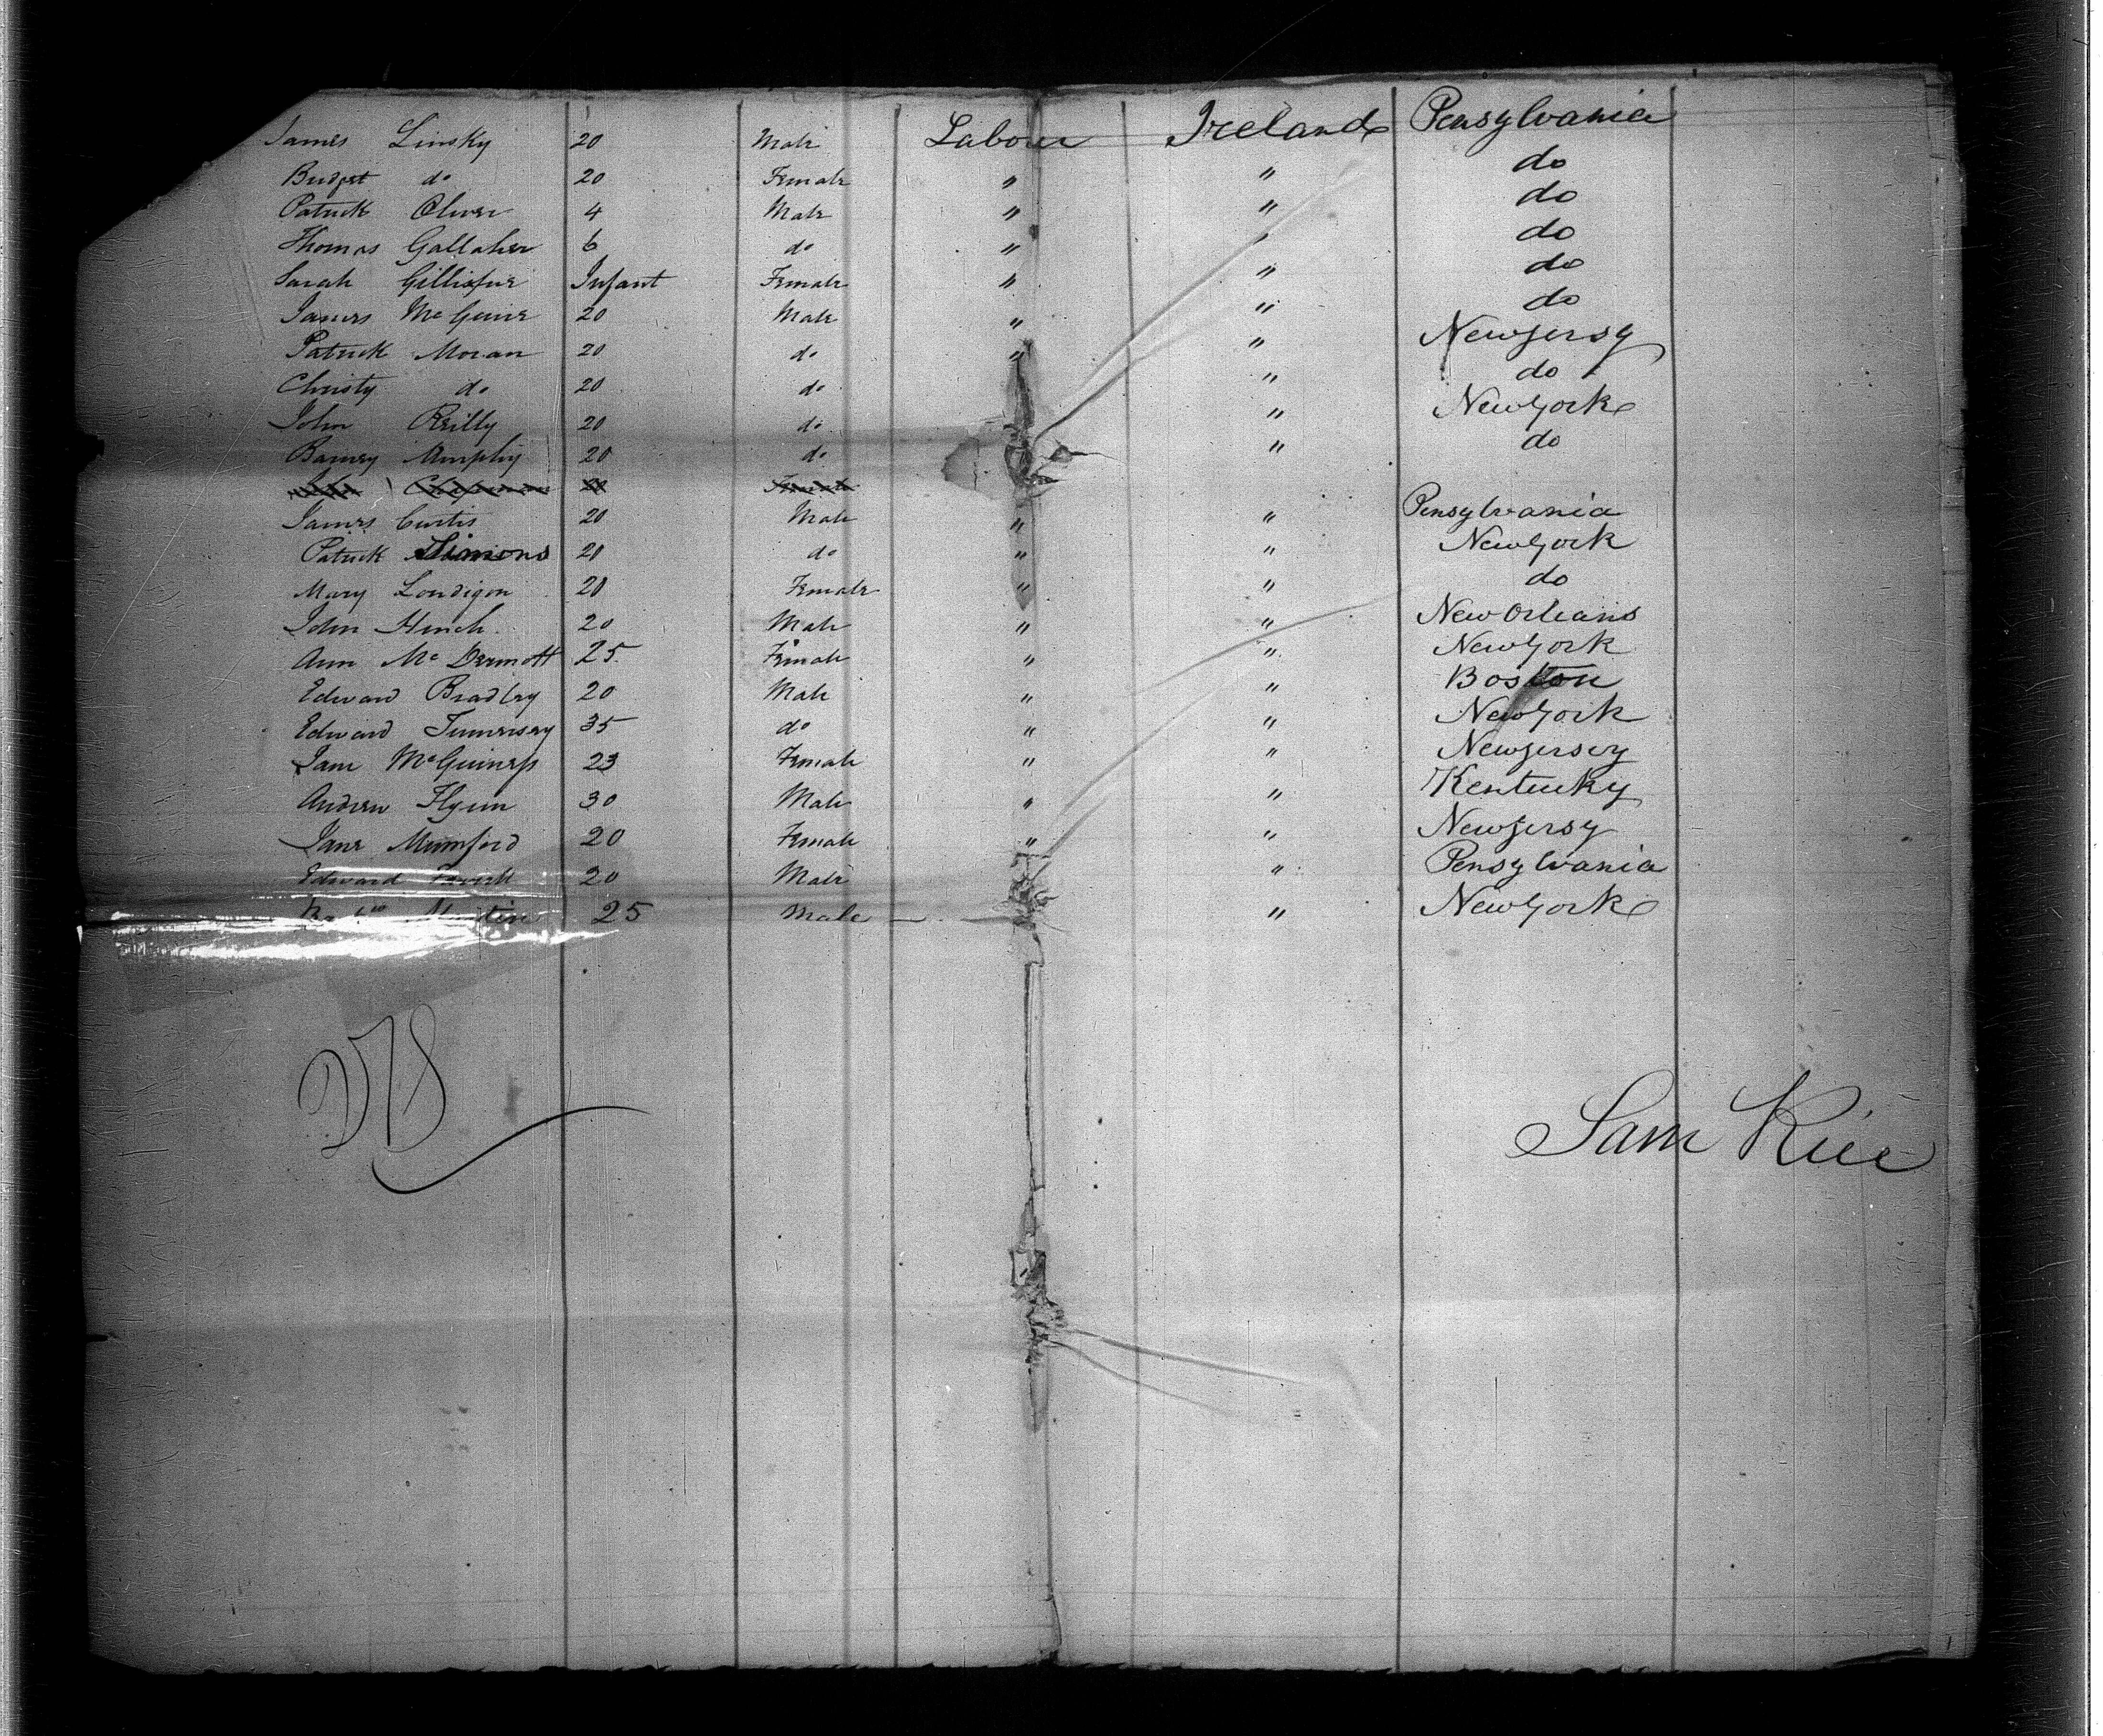 James Linsky 20 Male Labour Ireland Pensylvania
Bridget do 20 Female " " do
Patrick Oliver 4 Male " " do
Thomas Gallaher 6 do " " do
Sarah Infant Female " " do
James McGuire 20 Male " " do
Patrick Moran 20 do " " New Jersy
Christy do 20 do " do
John Reilly 20 do " New York
Barney Murphy 20 do " do
James Curtis 20 Male " " Pensylvania
Patrick Timons 20 do " " New York
Mary Londigon 20 Female " " do
John Hinch 20 Male " " New Orleans
Ann McDermott 25 Female " " New York
Edward Bradley 20 Male " " Boston
Edward 35 do " " New York
Jane McGuiness 23 Female " " New Jersey
Andrew Flynn 30 Male " " Kentucky
Jane Mumford 20 Female " " New Jersy
Edward 20 Male " Pensylvania
Martin 25 Male — " New York
Sam Rice